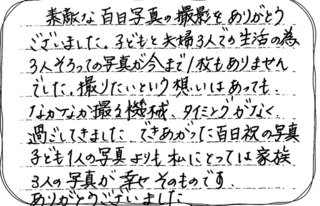 素敵な百日写真の撮影をありがとう
ございました。子どもと夫婦3人での生活の為
3人そろっての写真が今まで1枚もありません
でした。撮りたいという想いはあっても
なかなか撮る機械、タイミングがなく
過ごしてきました。できあがった百日祝の写真
子ども1人の写真よりも私にとっては家族
3人の写真が幸せそのものです。
ありがとうございました